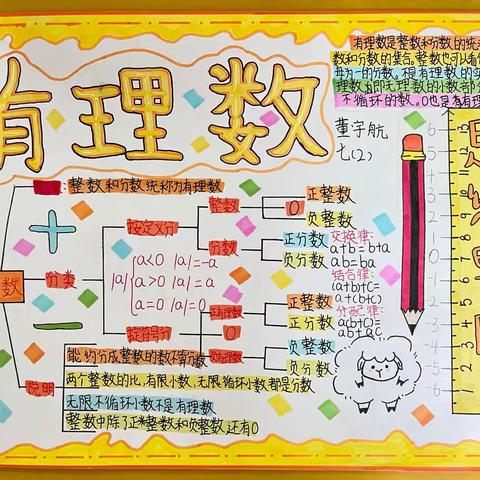 有理数
有理数是整数和分数的统
数和分数的集合。整数也可以看
母为一的分数。不是有理数的实
理数,即无理数的小数部分
不循环的数。0也是有理
董宇航
七(2)
:整数和分数统称为有理数
数
分类
说明
按定义分
整数
正整数
0
负整数
分数
正分数
负分数
|a|
a<0 |a|=-a
a>0 |a|=a
a=0 |a|=0
按符号分
正有理数
正整数
正分数
0
负整数
负分数
交换律:
a+b=b+a
ab=ba
结合律:
a+b+c=
a+(b+c)
分配律:
a(b+c)=
ab+ac
能约分成整数的数不算分数
两个整数的比,有限小数,无限循环小数都是分数
无限不循环小数不是有理数
整数中除了正整数和负整数还有0